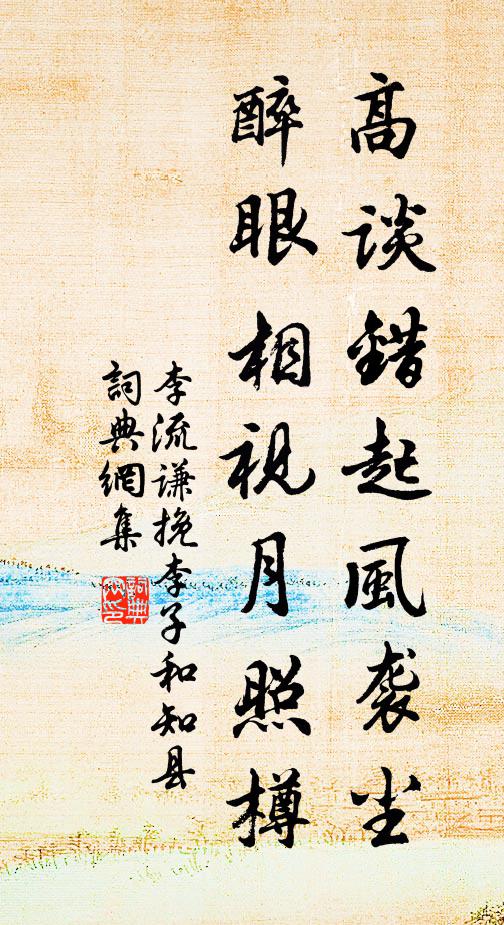 高谈錯起風袭坐
醉眼相视月照樽
李流谦挽李子和知县
詞典網集